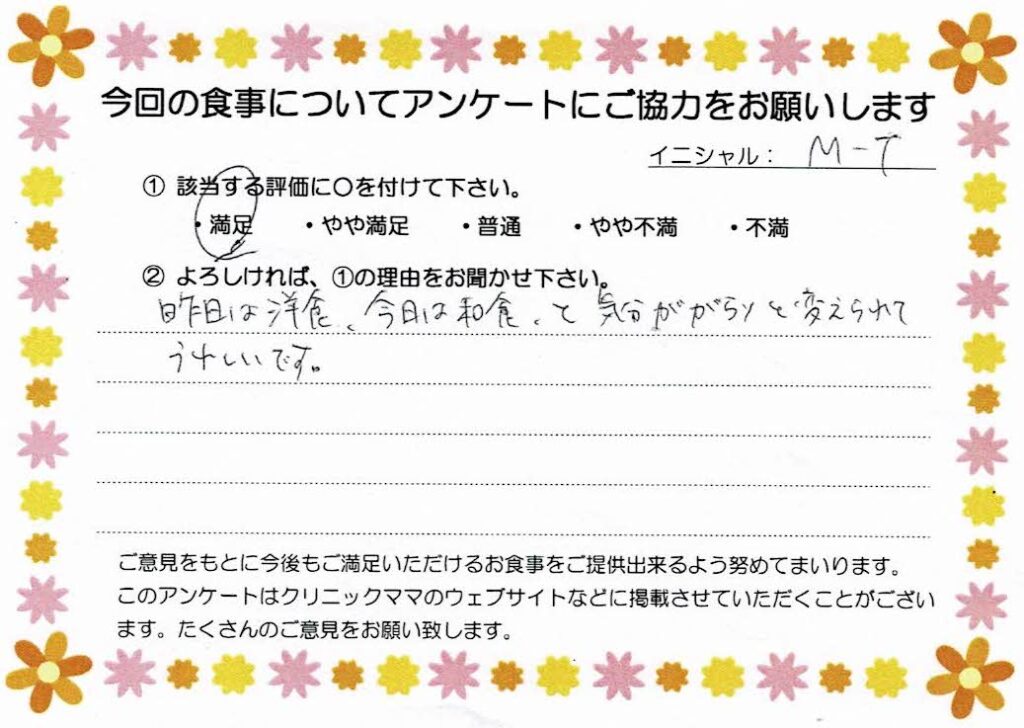 今回の食事についてアンケートにご協力をお願いします
イニシャル： M-T
① 該当する評価に〇を付けて下さい。
・満足 ・やや満足 ・普通 ・やや不満 ・不満
② よろしければ、①の理由をお聞かせ下さい。
昨日は洋食、今日は和食、と気分ががらりと変えられて
うれしいです。
ご意見をもとに今後もご満足いただけるお食事をご提供出来るよう努めてまいります。
このアンケートはクリニックママのウェブサイトなどに掲載させていただくことがござい
ます。たくさんのご意見をお願い致します。